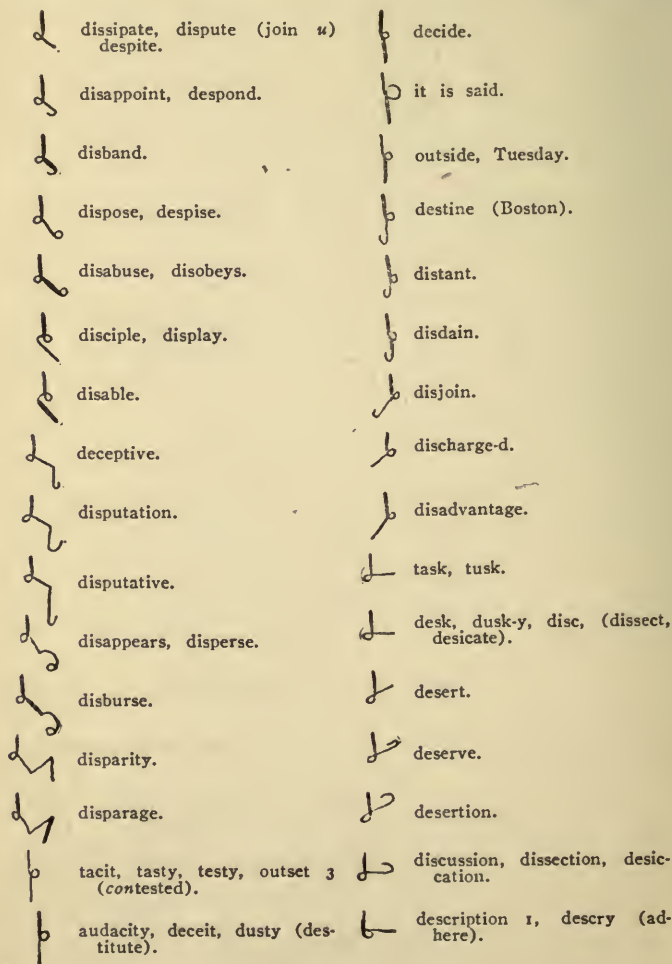 dissipate, dispute (join u)
despite.
disappoint, despond.
disband.
dispose, despise.
disabuse, disobeys.
disciple, display.
disable.
deceptive.
disputation.
disputative.
disappears, disperse.
disburse.
disparity.
disparage.
tacit, tasty, testy, outset 3
(contested).
audacity, deceit, dusty (des-
titute).
decide.
it is said.
outside, Tuesday.
destine (Boston).
distant.
disdain.
disjoin.
discharge-d.
disadvantage.
task, tusk.
desk, dusk-y, disc, (dissect,
desicate).
desert.
deserve.
desertion.
discussion, dissection, desic-
cation.
description 1, descry (ad-
here).